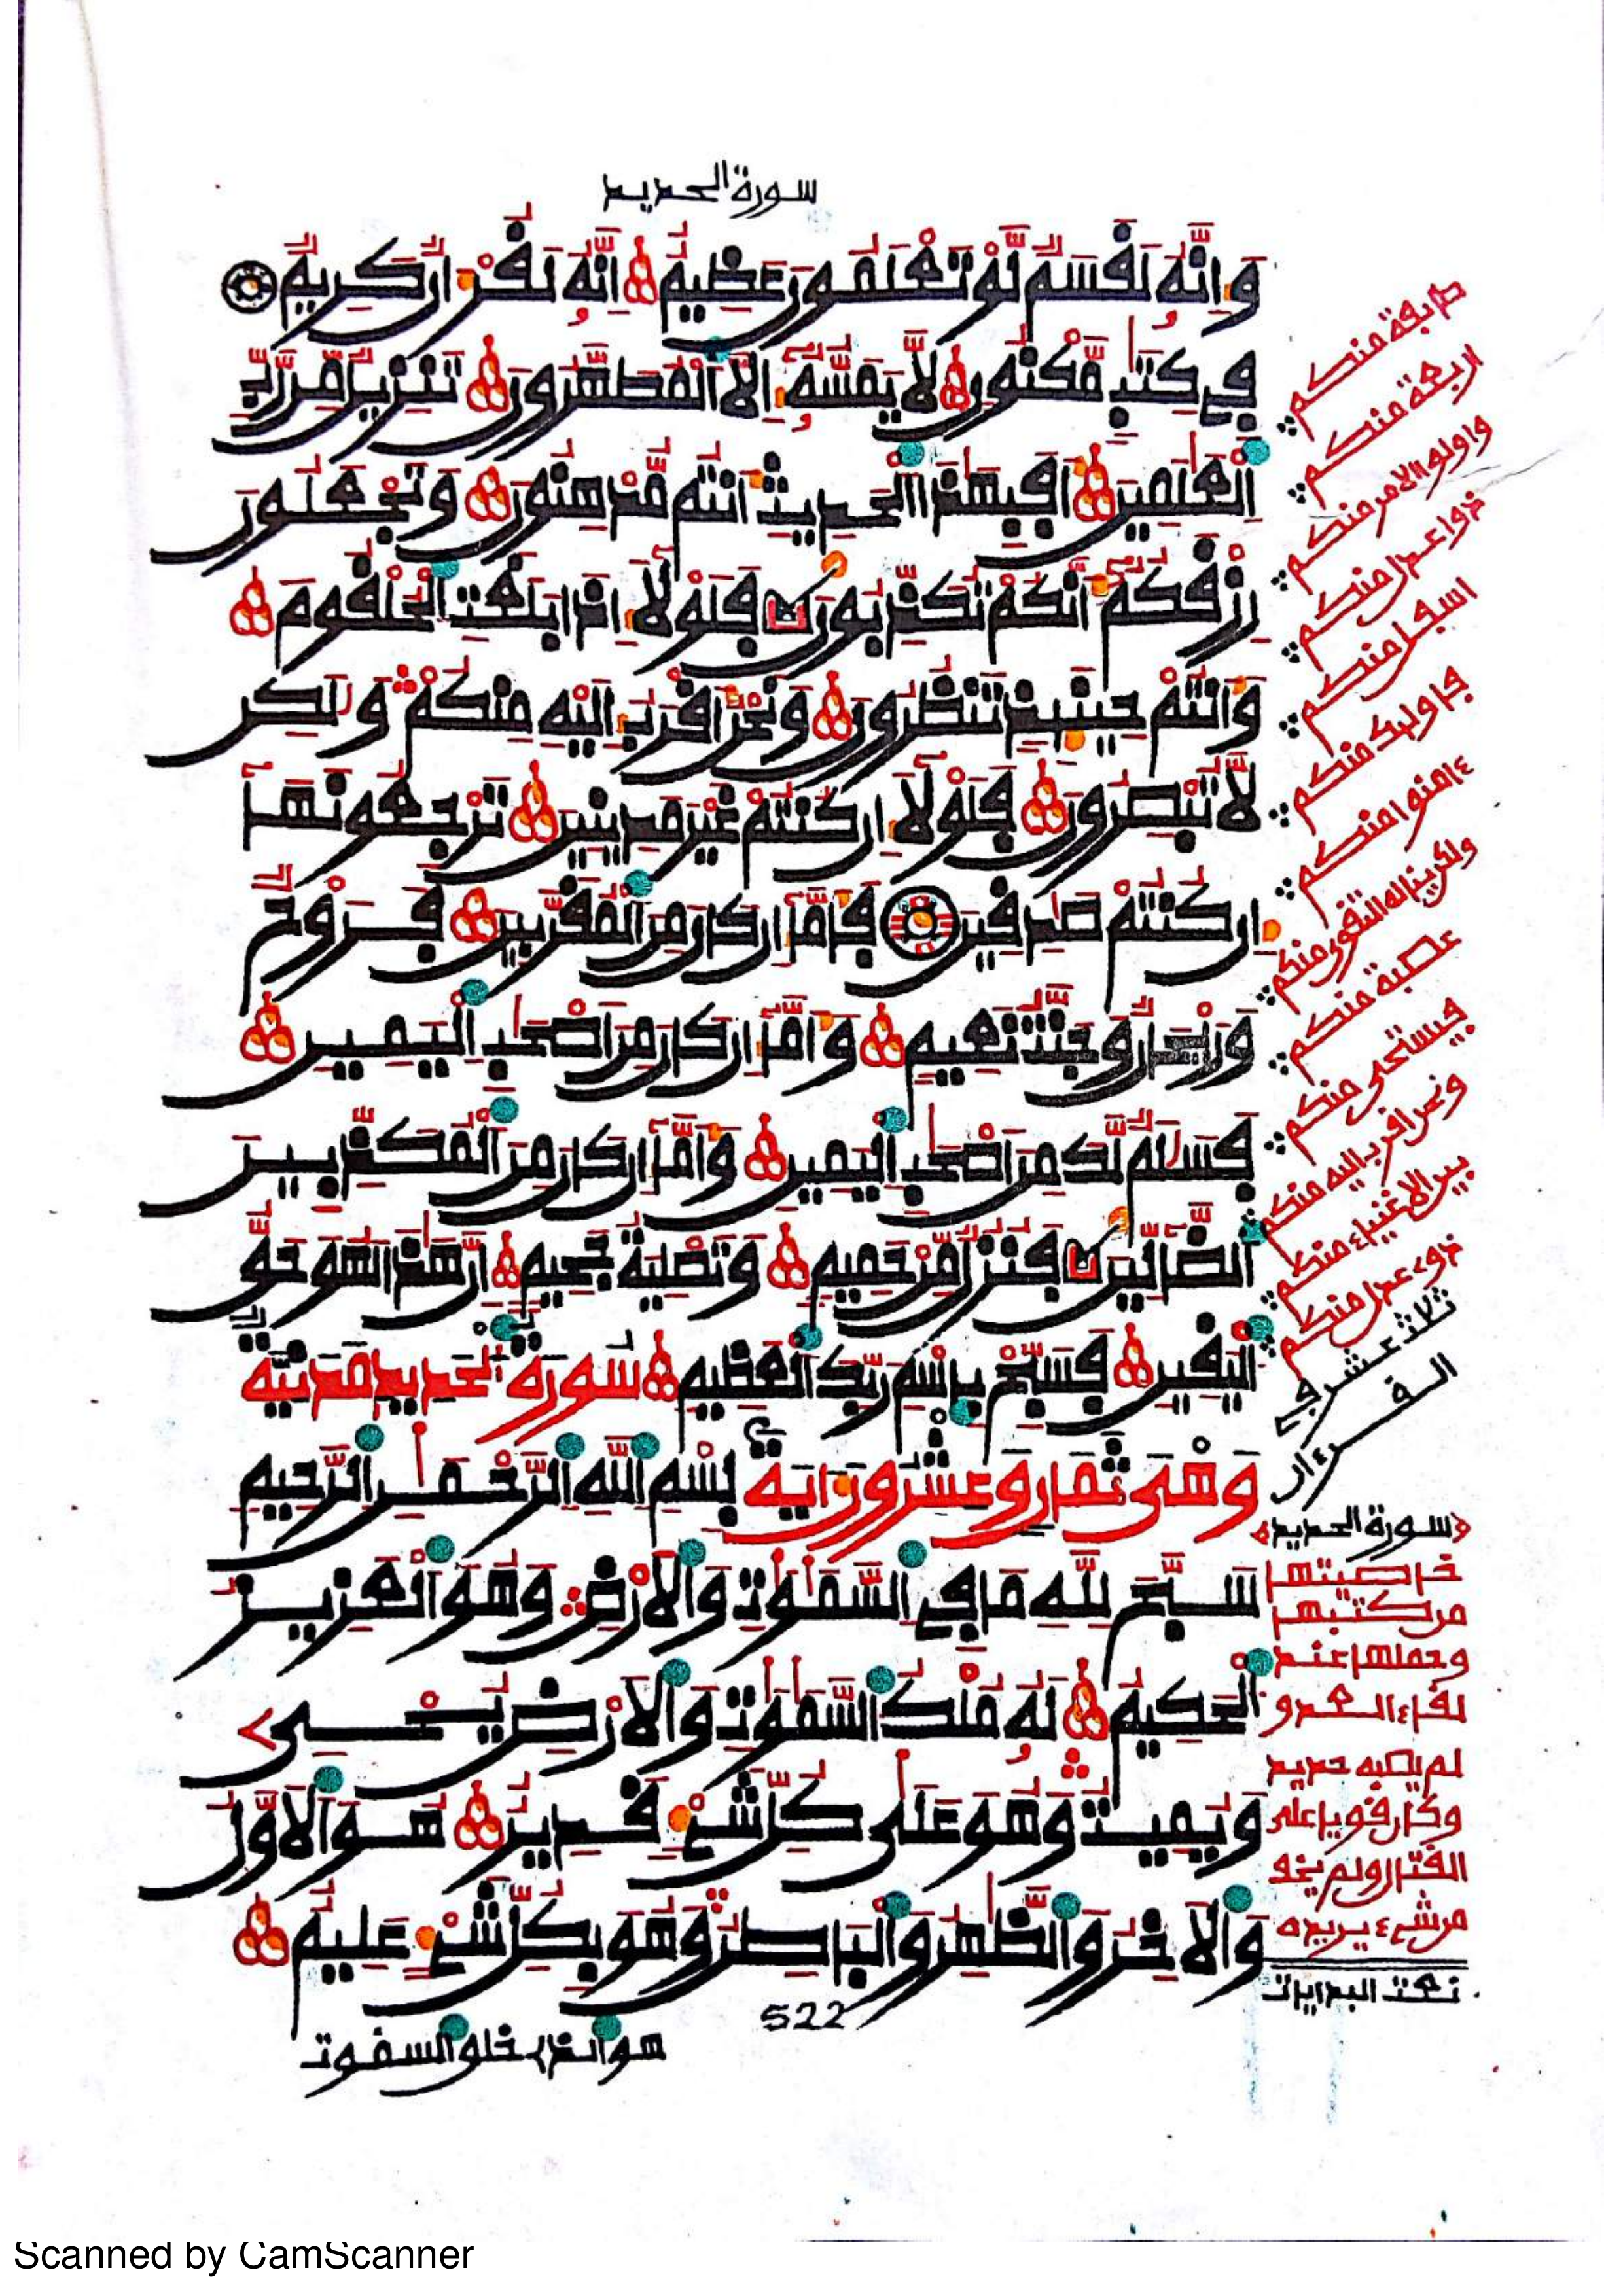 سورة الحديد
وَإِنَّهُ لَقَسَمٌ لَّوْ تَعْلَمُونَ عَظِيمٌ إِنَّهُ لَقُرْءَانٌ كَرِيمٌ
فِي كِتَٰبٍ مَّكْنُونٍ لَّا يَمَسُّهُ إِلَّا ٱلْمُطَهَّرُونَ تَنزِيلٌ مِّن رَّبِّ
ٱلْعَٰلَمِينَ أَفَبِهَٰذَا ٱلْحَدِيثِ أَنتُم مُّدْهِنُونَ وَتَجْعَلُونَ
رِزْقَكُمْ أَنَّكُمْ تُكَذِّبُونَ فَلَوْلَا إِذَا بَلَغَتِ ٱلْحُلْقُومَ
وَأَنتُمْ حِينَئِذٍ تَنظُرُونَ وَنَحْنُ أَقْرَبُ إِلَيْهِ مِنكُمْ وَلَٰكِن
لَّا تُبْصِرُونَ فَلَوْلَا إِن كُنتُمْ غَيْرَ مَدِينِينَ تَرْجِعُونَهَا
إِن كُنتُمْ صَٰدِقِينَ فَأَمَّا إِن كَانَ مِنَ ٱلْمُقَرَّبِينَ فَرَوْحٌ
وَرَيْحَانٌ وَجَنَّتُ نَعِيمٍ وَأَمَّا إِن كَانَ مِنْ أَصْحَٰبِ ٱلْيَمِينِ
فَسَلَٰمٌ لَّكَ مِنْ أَصْحَٰبِ ٱلْيَمِينِ وَأَمَّا إِن كَانَ مِنَ ٱلْمُكَذِّبِينَ
ٱلضَّالِّينَ فَنُزُلٌ مِّنْ حَمِيمٍ وَتَصْلِيَةُ جَحِيمٍ إِنَّ هَٰذَا لَهُوَ حَقُّ
ٱلْيَقِينِ فَسَبِّحْ بِاسْمِ رَبِّكَ ٱلْعَظِيمِ سُورَةُ ٱلْحَدِيدِ مَدَنِيَّةٌ
وَهِيَ ثَمَانٌ وَعِشْرُونَ ءَايَةً بِسْمِ ٱللَّهِ ٱلرَّحْمَٰنِ ٱلرَّحِيمِ
سَبَّحَ لِلَّهِ مَا فِي ٱلسَّمَٰوَٰتِ وَٱلْأَرْضِ وَهُوَ ٱلْعَزِيزُ
ٱلْحَكِيمُ لَهُ مُلْكُ ٱلسَّمَٰوَٰتِ وَٱلْأَرْضِ يُحْيِي
وَيُمِيتُ وَهُوَ عَلَىٰ كُلِّ شَيْءٍ قَدِيرٌ هُوَ ٱلْأَوَّلُ
وَٱلْآخِرُ وَٱلظَّٰهِرُ وَٱلْبَاطِنُ وَهُوَ بِكُلِّ شَيْءٍ عَلِيمٌ
522
هو الذي خلق السموت
طايفة منكم
اربعة منكم
واولو الامر منكم
ذوا عدل منكم
اسفل منكم
فاوليك منكم
ءامنوا منكم
ولكن يناله التقوى منكم
عصبة منكم
فيستحي منكم
ونحن اقرب اليه منكم
بين الاغنياء منكم
ذوي عدل منكم
ثلاث عشر في
القرءان
سورة الحديد
خاصيتها
من كتبها
وحملها عند
لقاء العدو
لم يصبه حديد
وكان قويا على
القتال ولم يخف
من شيء يريده
تمت البدايات
Scanned by CamScanner